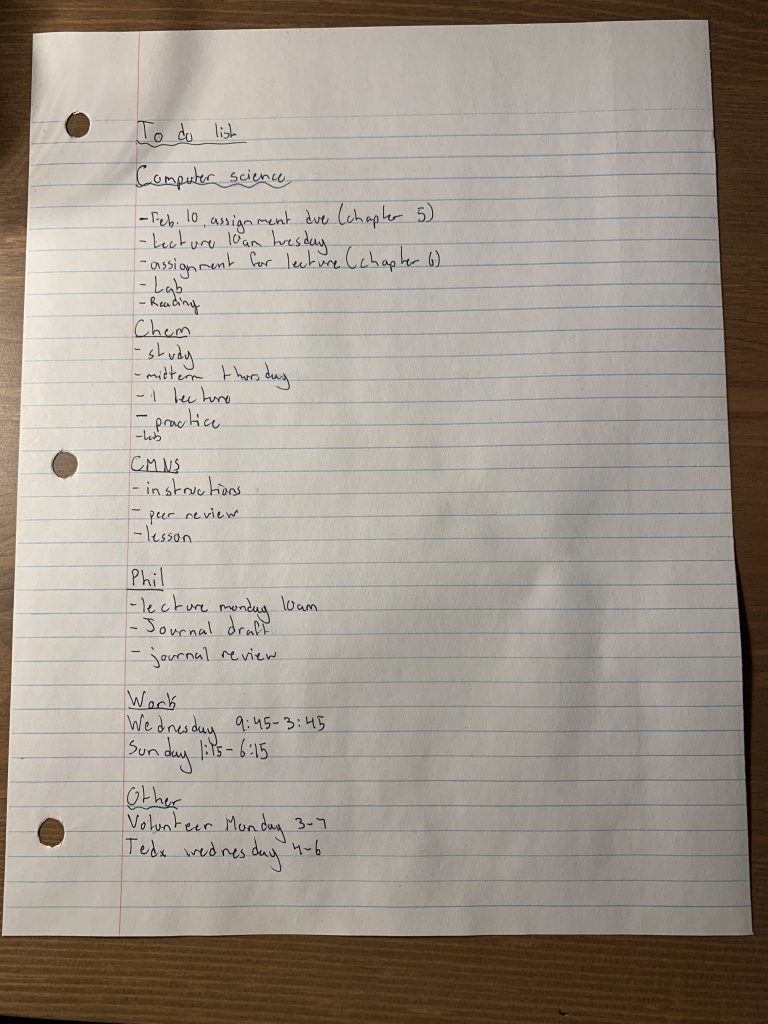 To do list
Computer science
- Feb. 10, assignment due (chapter 5)
- Lecture 10am tuesday
- assignment for lecture (chapter 6)
- Lab
- Reading
Chem
- study
- midterm thursday
- 1 lecture
- practice
- Lab
CMNS
- instructions
- peer review
- lesson
Phil
- lecture monday 10am
- Journal draft
- journal review
Work
Wednesday 9:45-3:45
Sunday 1:15-6:15
Other
Volunteer Monday 3-7
Tedx wednesday 4-6